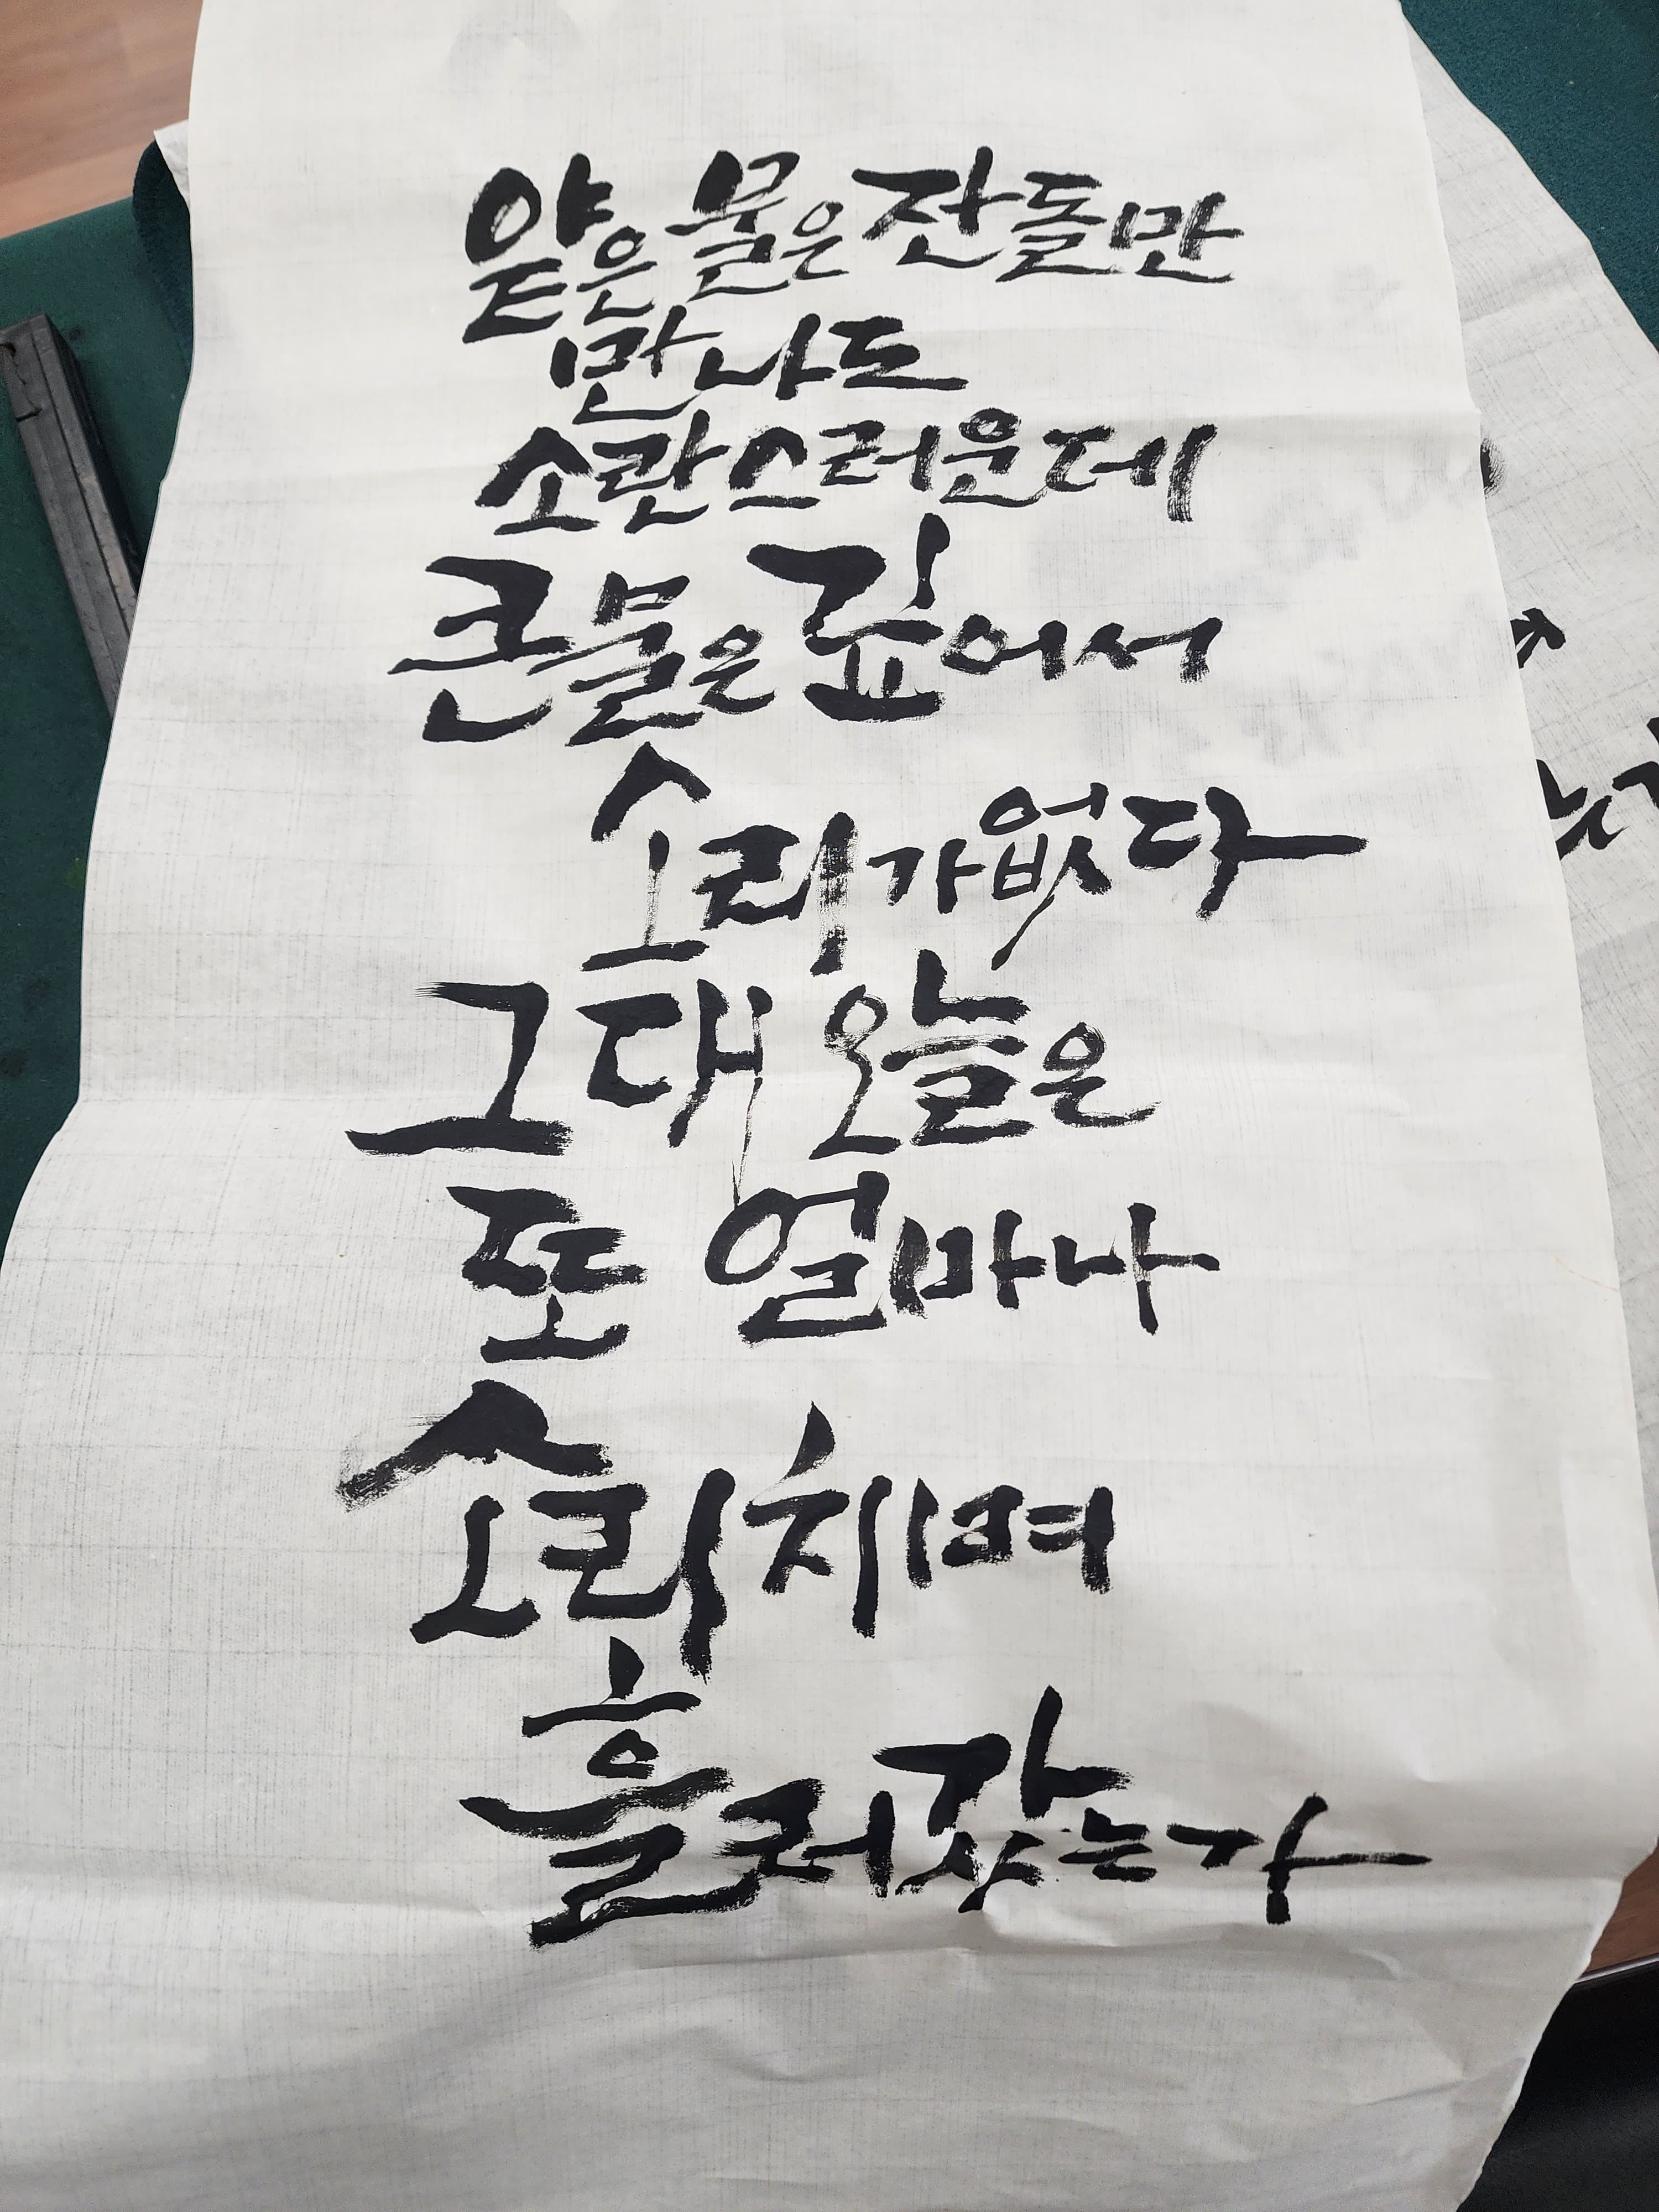 얕은 물은 잔돌만
만나도
소란스러운데
큰물은 깊어서
소리가 없다
그대 오늘은
또 얼마나
소리치며
흘러갔는가